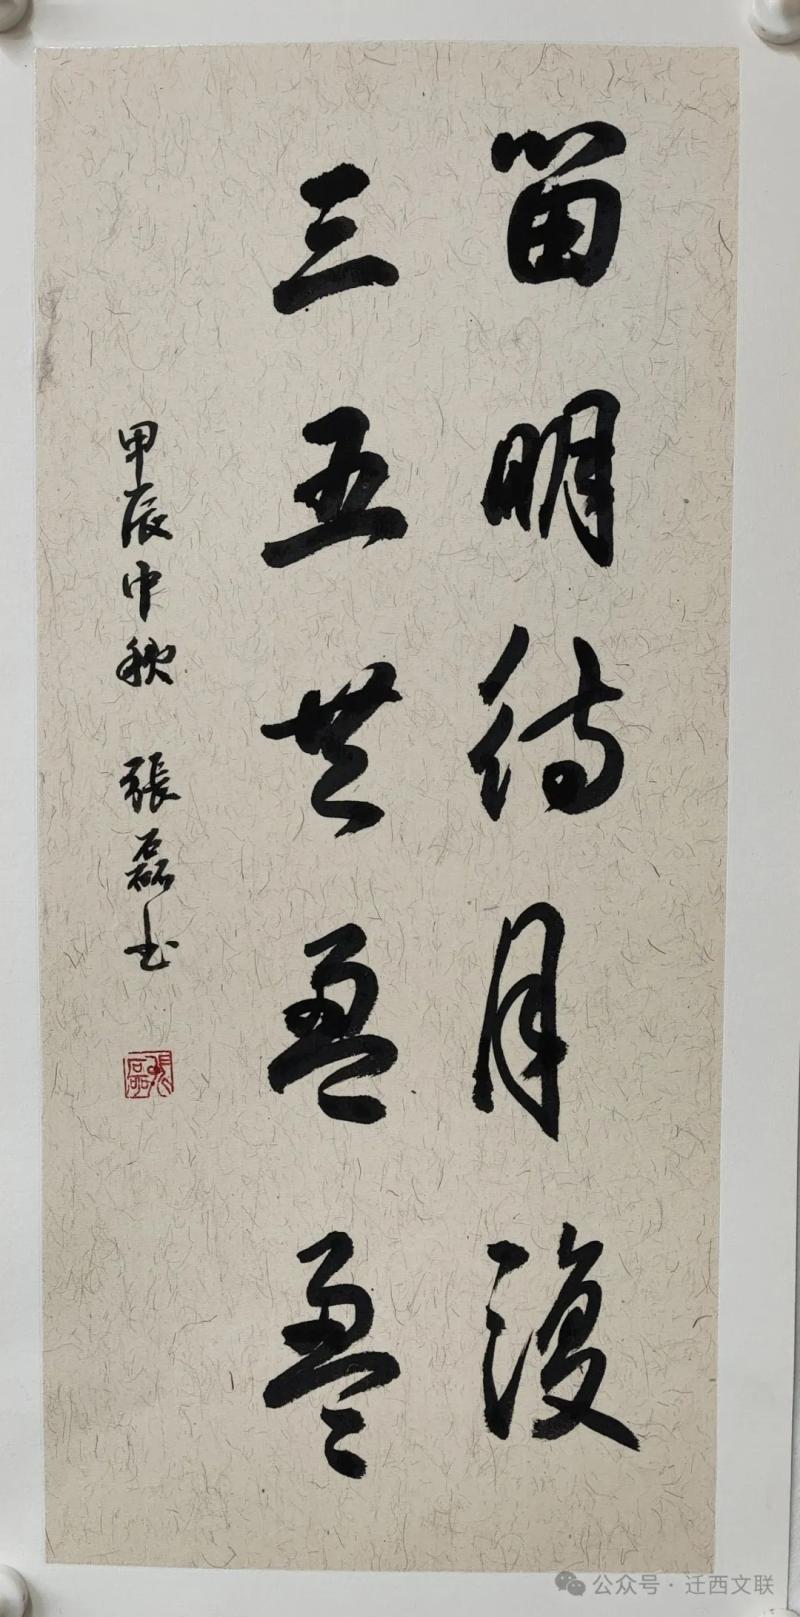 留明待月復
三五共盈盈
甲辰中秋 張磊书
張磊
公众号·迁西文联